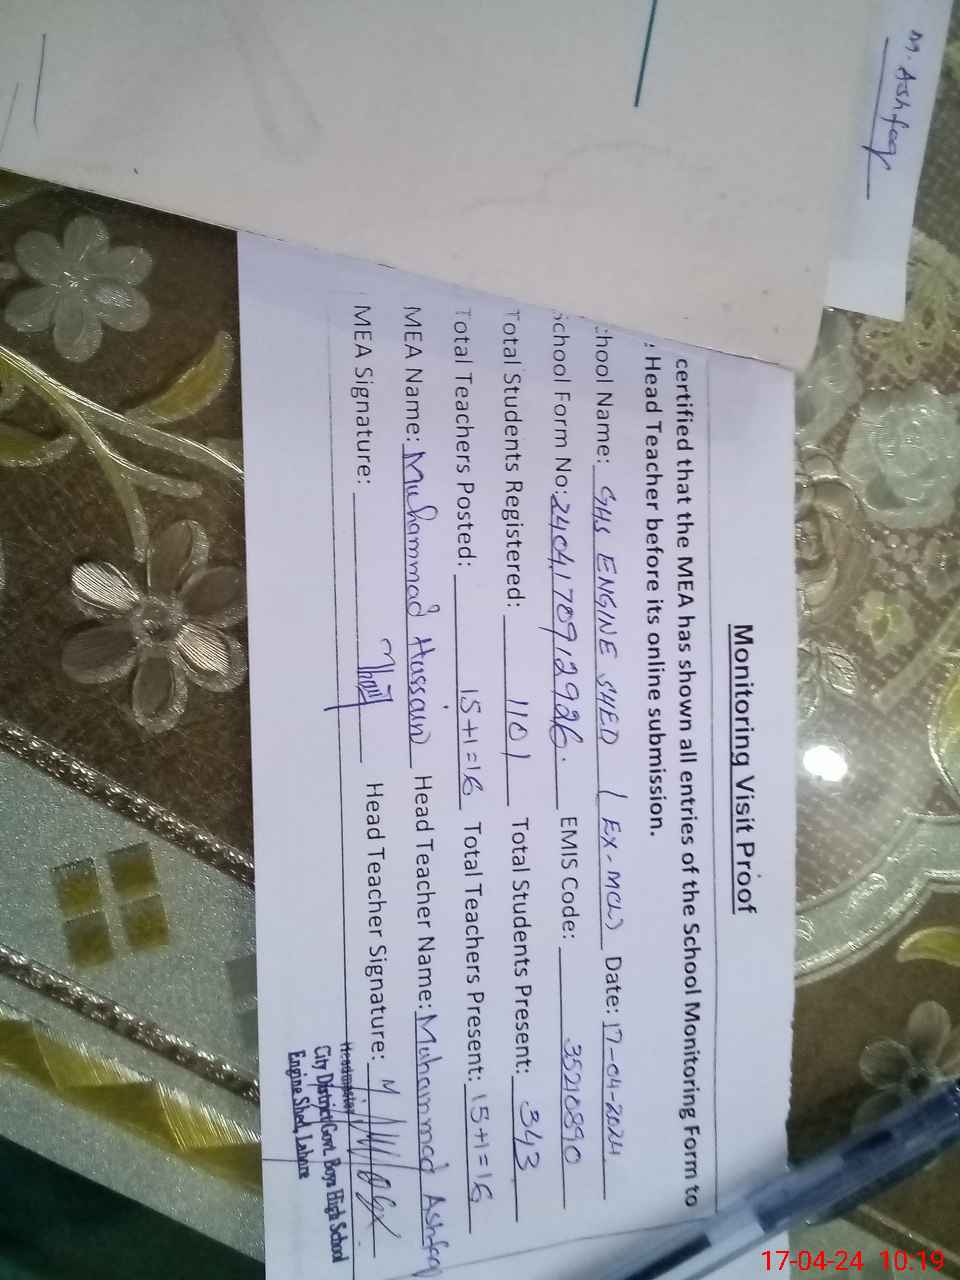 M. Ashfaq
Monitoring Visit Proof
certified that the MEA has shown all entries of the School Monitoring Form to
: Head Teacher before its online submission.
chool Name: GHS ENGINE SHED (EX-MCL) Date: 17-04-2024
School Form No: 2404170912926. EMIS Code: 35210890
Total Students Registered: 1101 Total Students Present: 343
Total Teachers Posted: 15+1=16 Total Teachers Present: 15+1=16
MEA Name: Muhammad Hassain Head Teacher Name: Muhammad Ashfaq
MEA Signature: Head Teacher Signature:
Headmaster
City District Govt. Boys High School
Engine Shed, Lahore
17-04-24 10:19